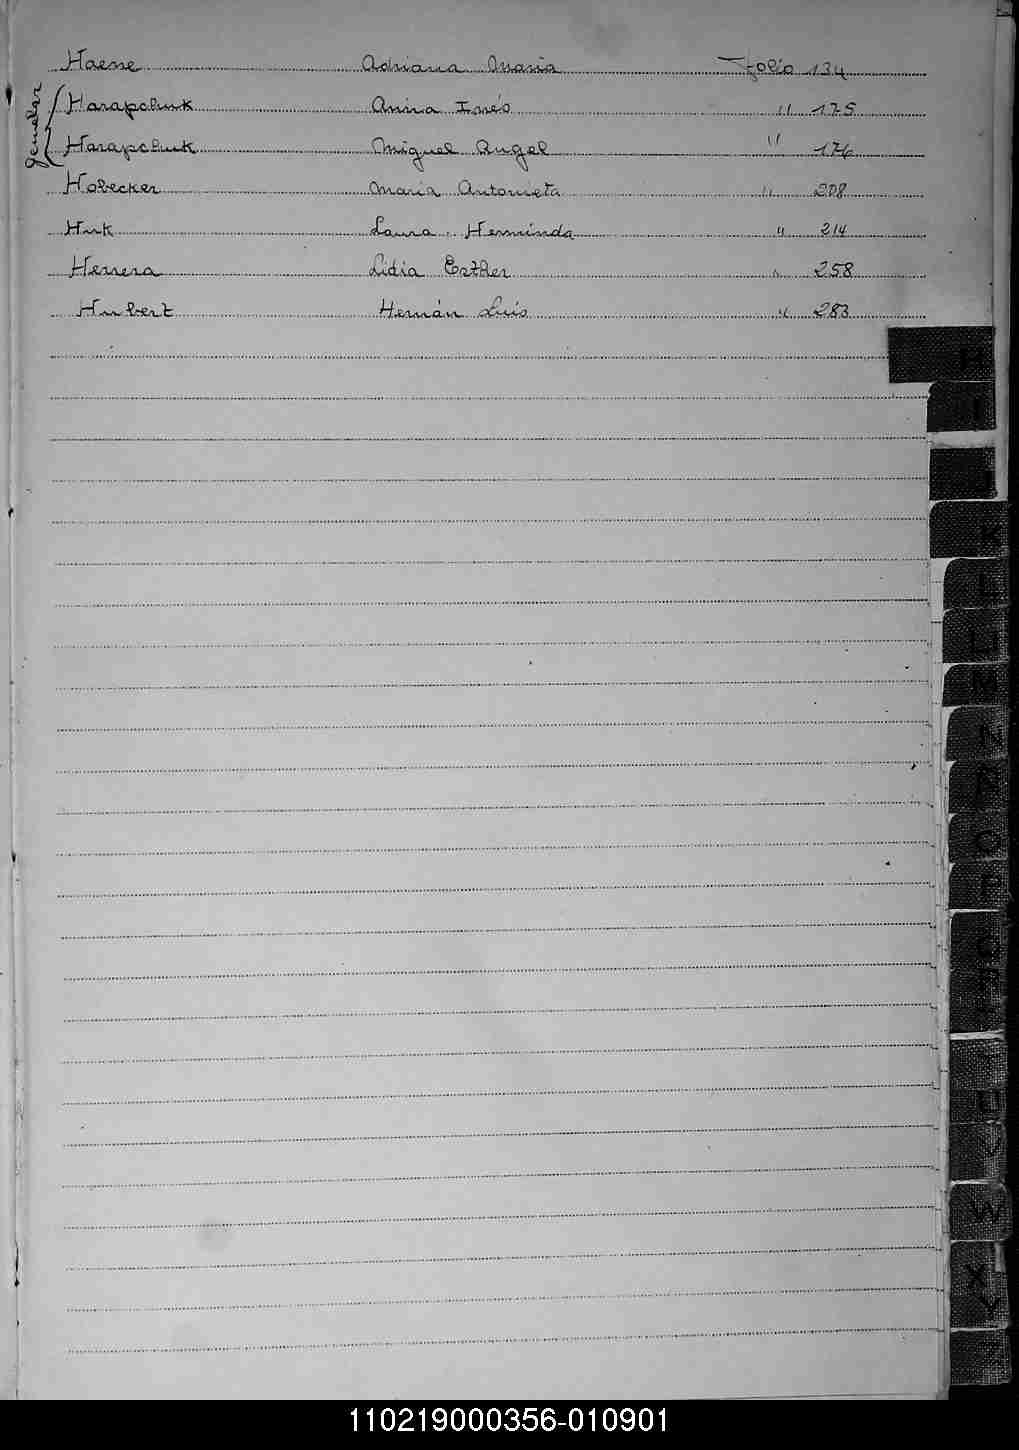 Haene Adriana Maria Folio 134
Gemelar
Harapchuk Anna Inés " 175
Harapchuk Miguel Angel " 176
Hobecker Maria Antonieta " 208
Huk Laura Herminda " 214
Herrera Lidia Esther " 258
Hubert Hernán Luis " 283
H
I
J
K
L
M
N
Ñ
O
P
W
X
Y
110219000356-010901